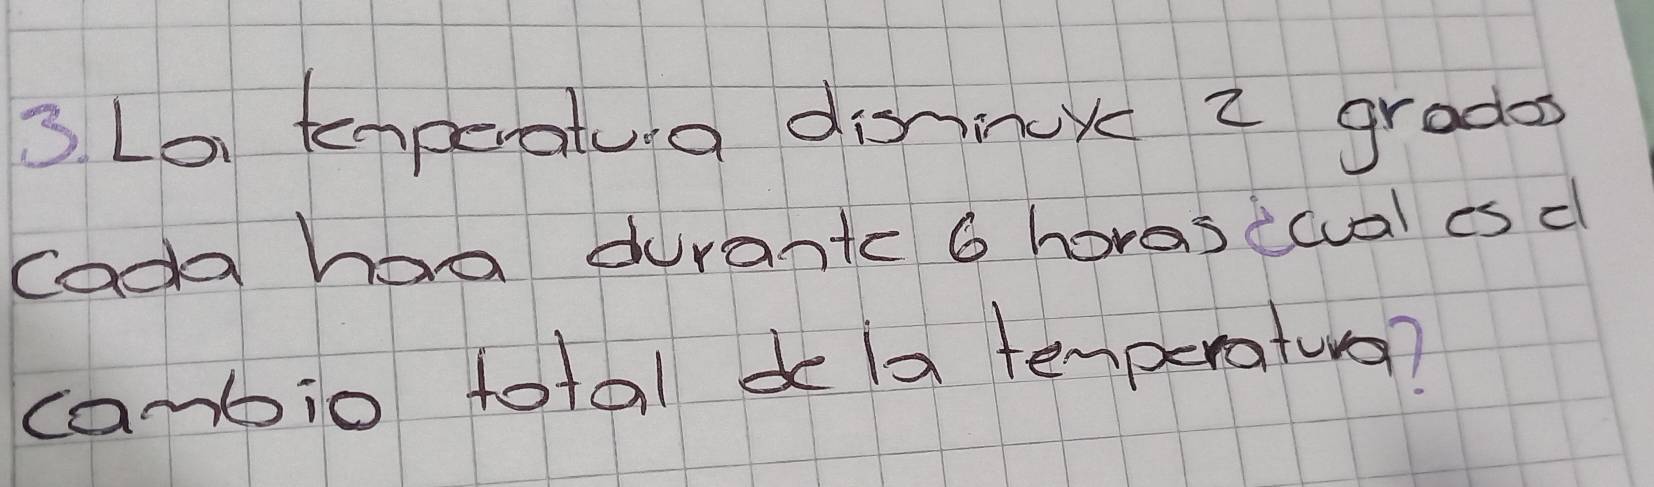 3. La temperatura disminuye 2 grados
cada hora durante 6 horas ¿cual es el
cambio total de la temperatura?